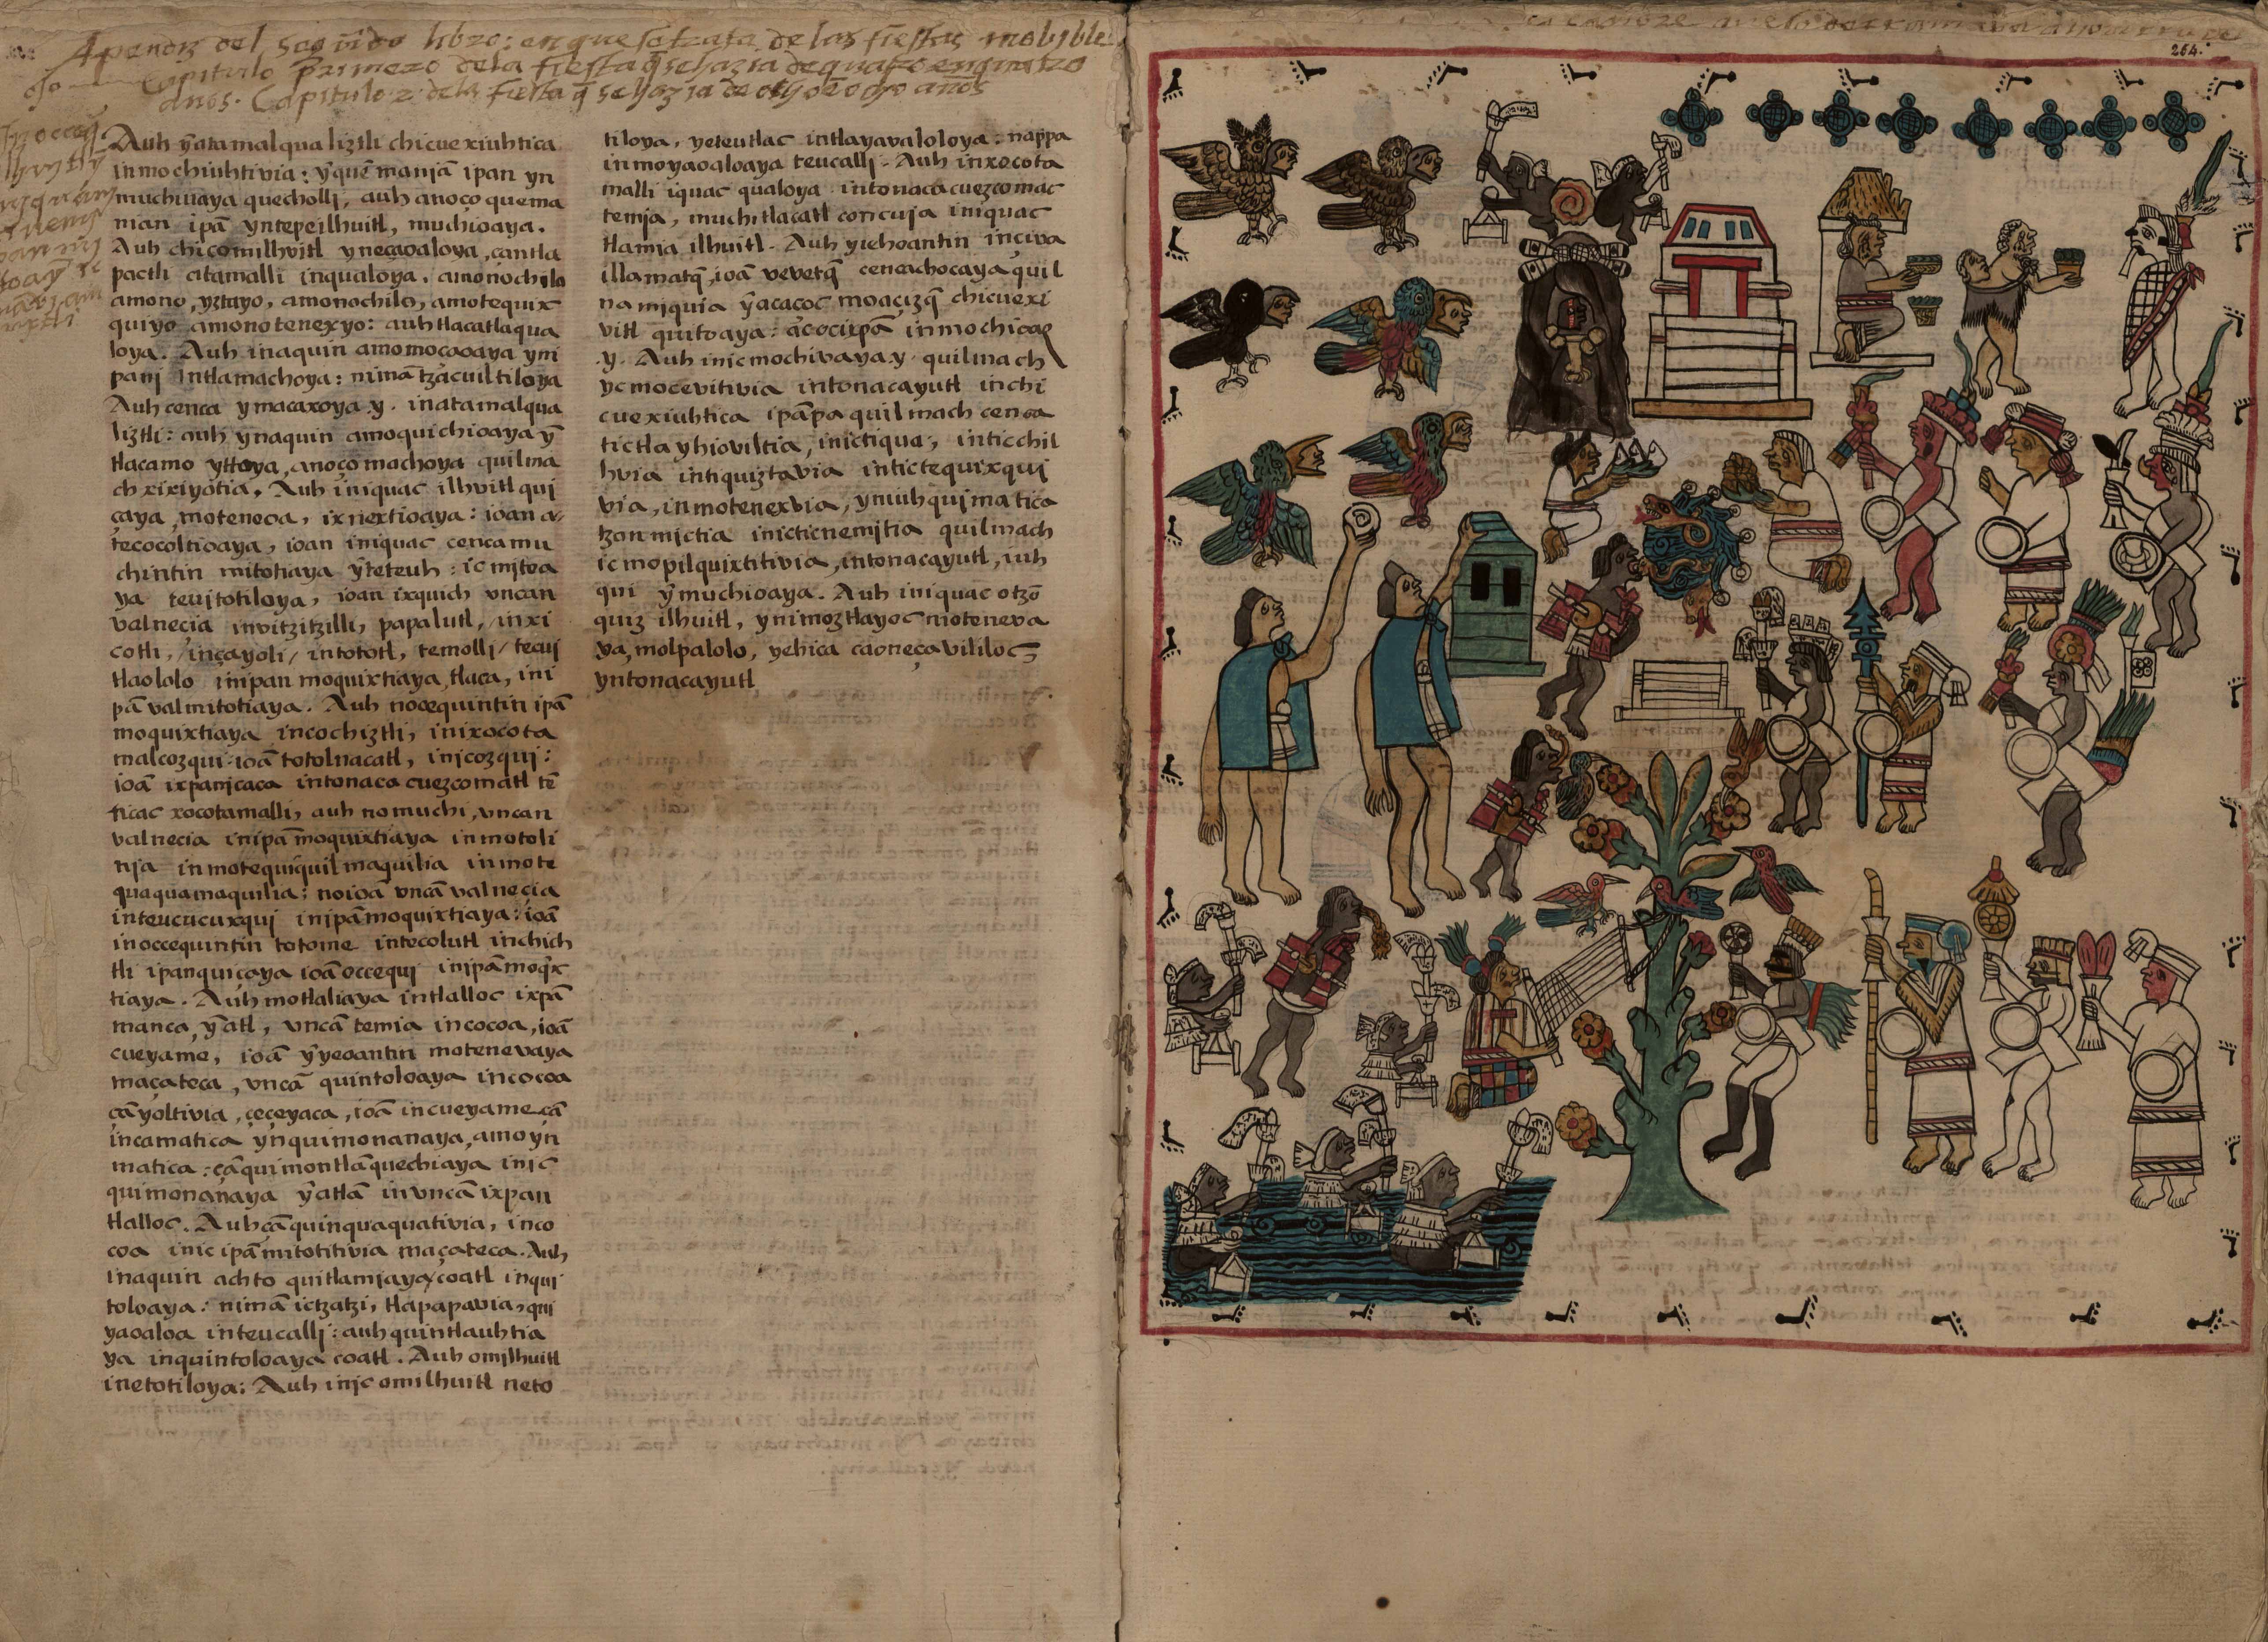 Apendiz del segūdo libro: en que se trata de las fiestas mobibles
Capitulo Primero de la fiesta q̄ se hazia de quatro en quatro
años. Capitulo 2 de la fiesta q̄ se hazia de ocho en ocho años
264.
Auh ỹatamalqualiztli chicuexiuhtica
inmochiuhtivia: ỹquē maniā ipan yn
muchivaya quecholli, auh anoço quema
nian ipā yntepeilhuitl, muchioaya.
Auh chicomilhvitl yneçaoaloya, çantla
pactli atamalli inqualoya, amonochilo
amono, yztayo, amonochilo, amotequix
quiyo amonotenexyo: auh tlacatlaqua
loya. Auh inaquin amomoçaoaya yni
pani Intlamachoya: nimā tzacuiltiloya
Auh cenca ymacaxoya .y. inatamalqua
liztli: auh ynaquin amoquichioaya ỹ
tlacamo yttoya, anoço machoya quilma
ch xixiyotia. Auh iniquac ilhvitl qui
çaya moteneoa, ixnextioaya: ioan a
tecocoltioaya, ioan iniquac cenca mu
chintin mitotiaya ỹteteuh: ic mitoa
ya teuitotiloya, ioan ixquich uncan
valneçia invitzitzilli, papalutl, inxi
cotli, inçayoli, intototl, temolli, tecui
tlaololo inipan moquixtiaya, tlaca, ini
pā valmitotiaya. Auh nocequintin ipā
moquixtiaya incochiztli, inixocota
malcozqui: ioā totolnacatl, inicozqui:
ioā ixpanicaca intonaca cuezcomatl tē
ticac xocotamalli, auh no muchi, uncan
valnecia inipā moquixtiaya inmotoli
nia inmotequiquilmaquilia inmote
quaquamaquilia: noioā uncā valneçia
inteucucuxqui inipāmoquixtiaya: ioā
inoccequintin totome intecolutl inchich
tli ipanquiçaya ioā occequi inipāmoq̄x
tiaya. Auh motlaliaya intlalloc ixpā
manca ỹatl, uncā temia incocoa, ioā
cueyame, ioā ỹyeoantin motenevaya
maçateca, uncā quintoloaya incocoa
çāyoltivia, çeçeyaca, ioā incueyame çā
incamatica ỹnquimonanaya, amo yn
matica: çā quimontlāquechiaya inic
quimonanaya ỹatlā inuncā ixpan
tlalloc. Auh çāquinquaquativia, inco
coa inic ipā mitotitivia maçateca. Auh
inaquin achto quitlamiaya coatl inqui
toloaya: nimā ictzatzi, tlapapavia, qui
yaoaloa inteucalli: auh quintlauhtia
ya inquintoloaya coatl. Auh omilhuitl
inetotiloya: Auh inic omilhuitl neto
tiloya, yeteutlac intlayavaloloya: nappa
inmoyaoaloaya teucalli. Auh inxocota
malli iquac qualoya intonacacuezcomac
temia, muchitlacatl concuia iniquac
tlamia ilhuitl. Auh yiehoantin inciva
illamatq̄, ioā vevetq̄ cencachocaya quil
namiquia ỹacaçoc moaçizq̄ chicuexi
vitl quitoaya: ac ocixpā inmochioaz
.y. Auh inic mochivaya .y. quilmach
yc mocevitivia intonacayutl inchi
cuexiuhtica ipāpa quilmach cenca
tictlayhioviltia, inictiqua, inticchil
hvia intiquiztavia intictequixqui
via, inmotenexvia, yniuhquimatica
tzonmictia inicticnemitia quilmach
ic mopilquixtitivia, intonacayutl, iuh
qui ỹmuchioaya. Auh iniquac otzō
quiz ilhuitl, ynimoztlayoc moteneva
ya, molpalolo, yehica caoneçavililoc
yntonacayutl